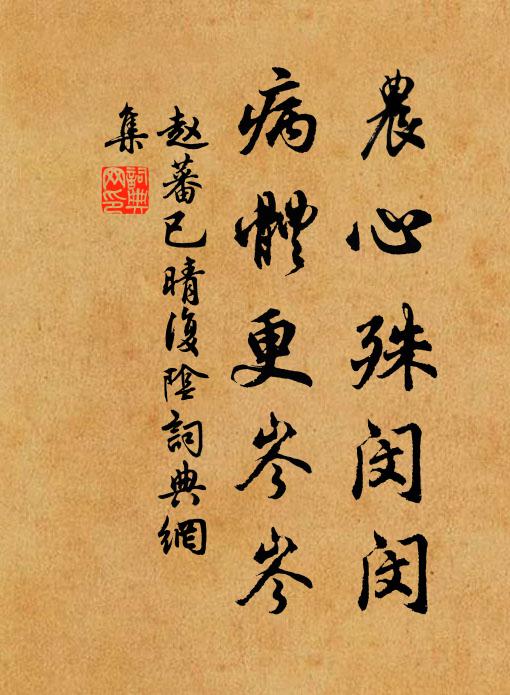 農心殊閔閔
病體更岑岑
赵蕃已晴復陰詞典網
集
詞典
网印